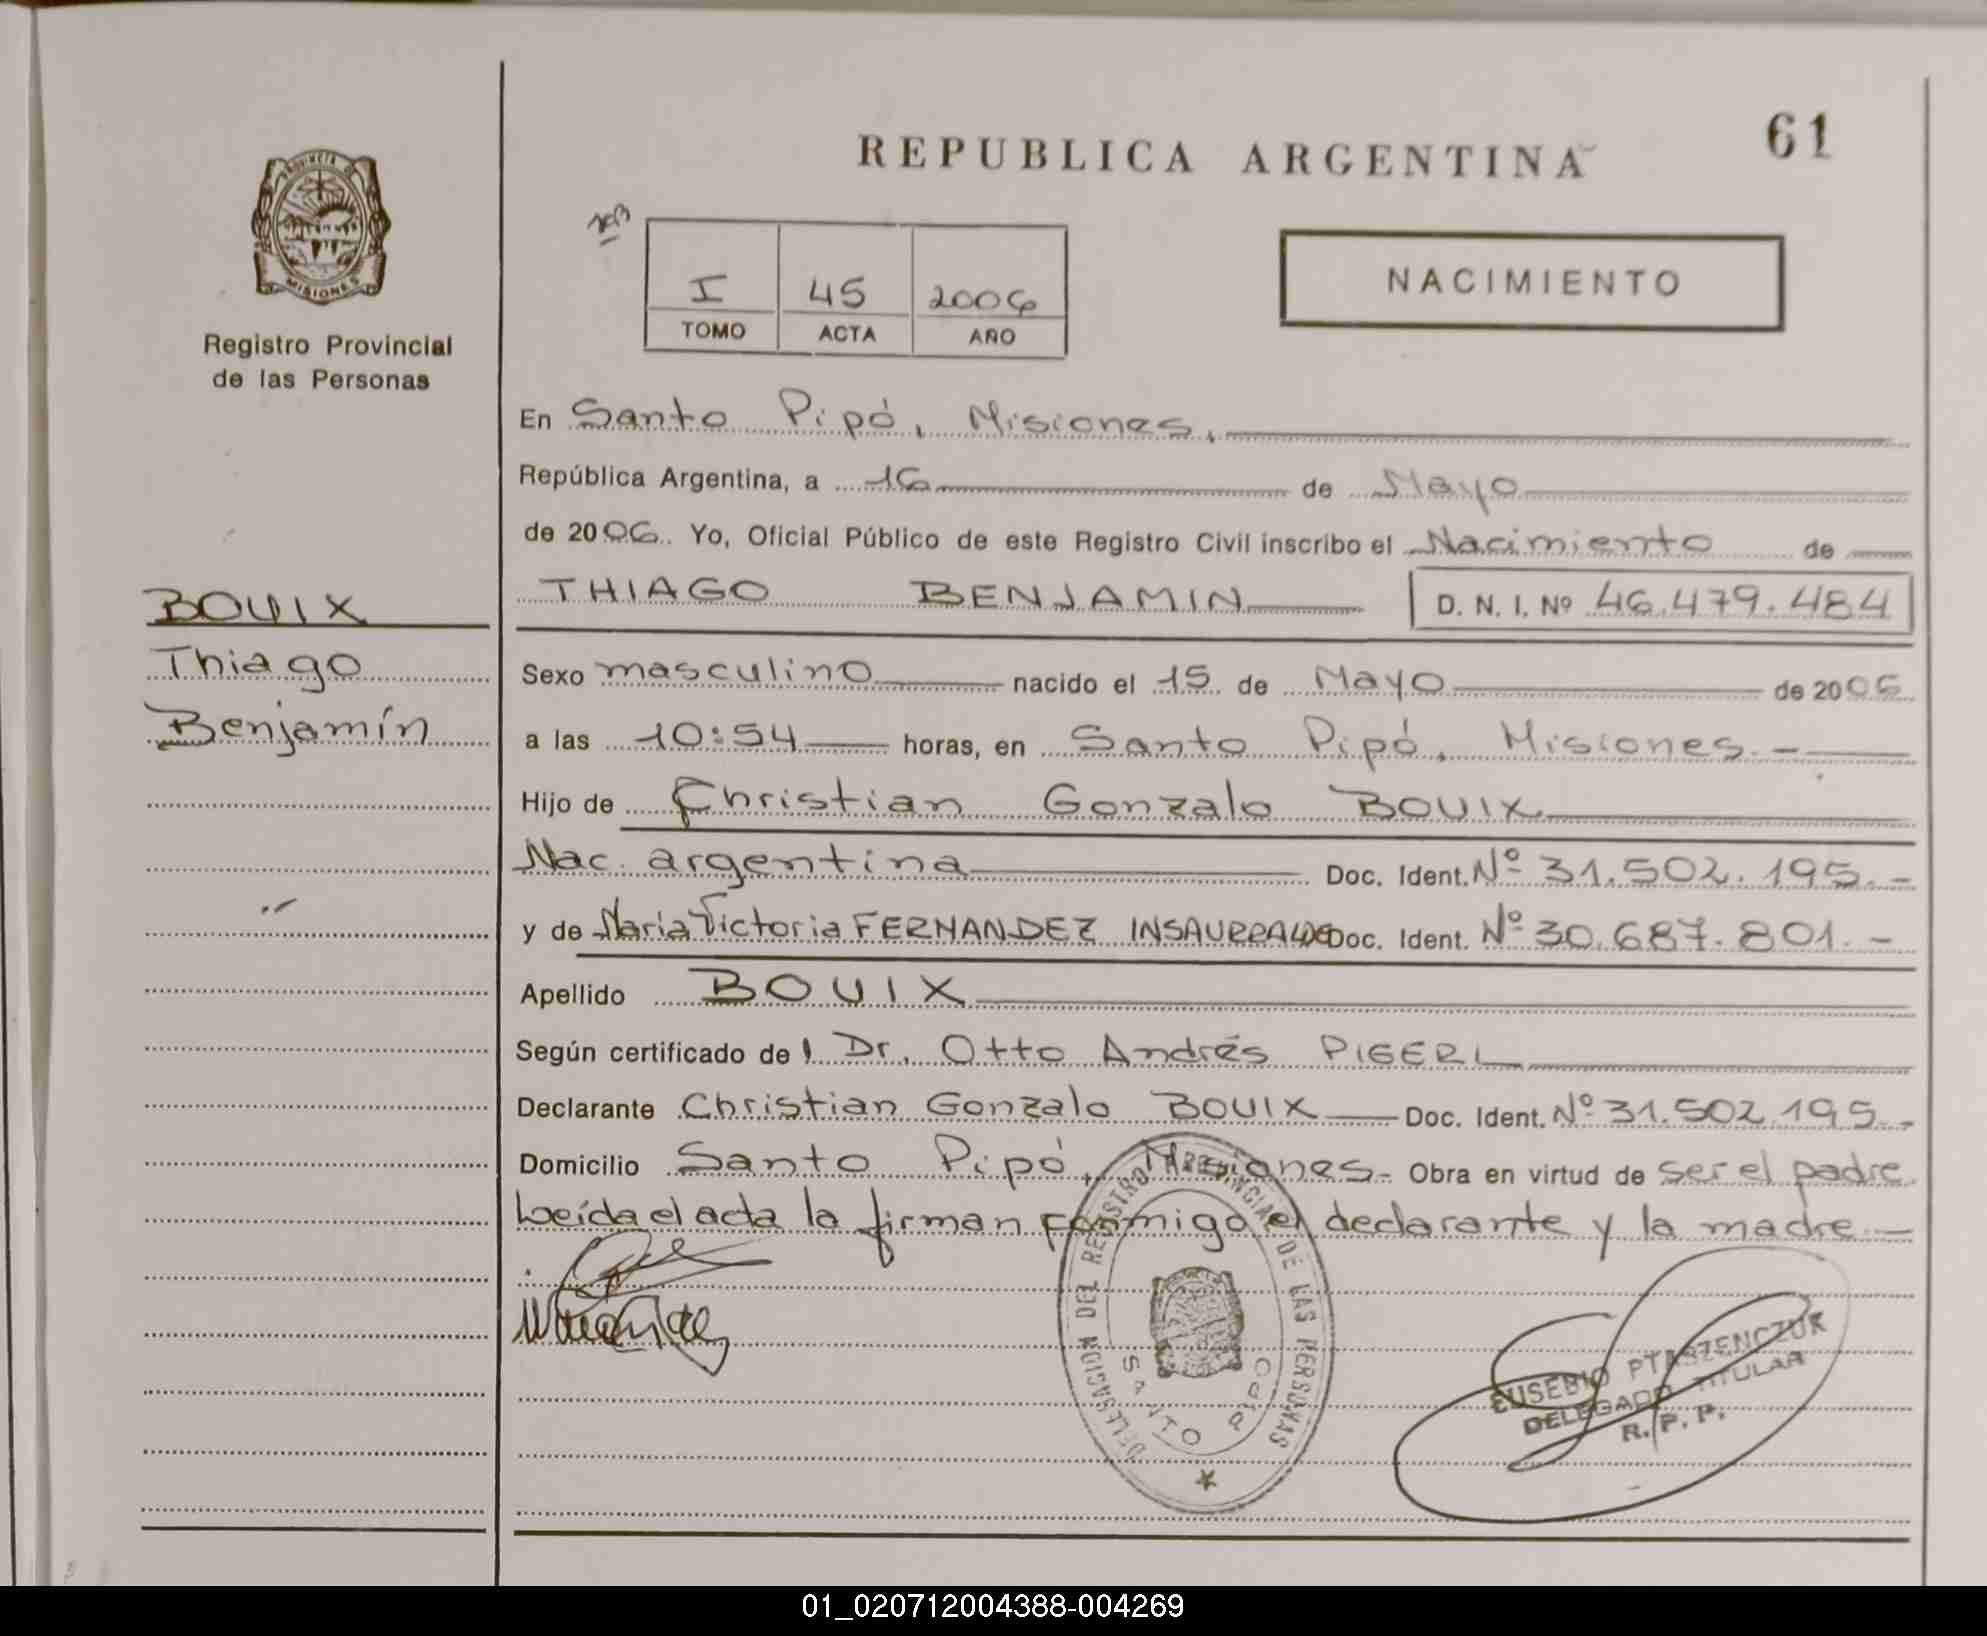 REPUBLICA ARGENTINA
61
PROVINCIA DE
MISIONES
Registro Provincial
de las Personas
I 45 2006
TOMO ACTA AÑO
NACIMIENTO
En Santo Pipó, Misiones,
República Argentina, a 16 de Mayo
de 2006. Yo, Oficial Público de este Registro Civil inscribo el Nacimiento de
THIAGO BENJAMIN D. N. I. Nº 46.479.484
BOUIX
Thiago
Benjamín
Sexo masculino nacido el 15 de Mayo de 2006
a las 10:54 horas, en Santo Pipó, Misiones.-
Hijo de Christian Gonzalo BOUIX
Nac. argentina Doc. Ident. Nº 31.502.195.-
y de Maria Victoria FERNANDEZ INSAURRALDE Doc. Ident. Nº 30.687.801.-
Apellido BOUIX
Según certificado de l Dr. Otto Andrés PIGERL
Declarante Christian Gonzalo BOUIX Doc. Ident. Nº 31.502.195.-
Domicilio Santo Pipó, Misiones.- Obra en virtud de ser el padre.
Leída el acta la firman conmigo el declarante y la madre.-
DELEGACION DEL REGISTRO PROVINCIAL DE LAS PERSONAS
SANTO PIPO
EUSEBIO PTASZENCZUK
DELEGADO TITULAR
R. P. P.
01_020712004388-004269